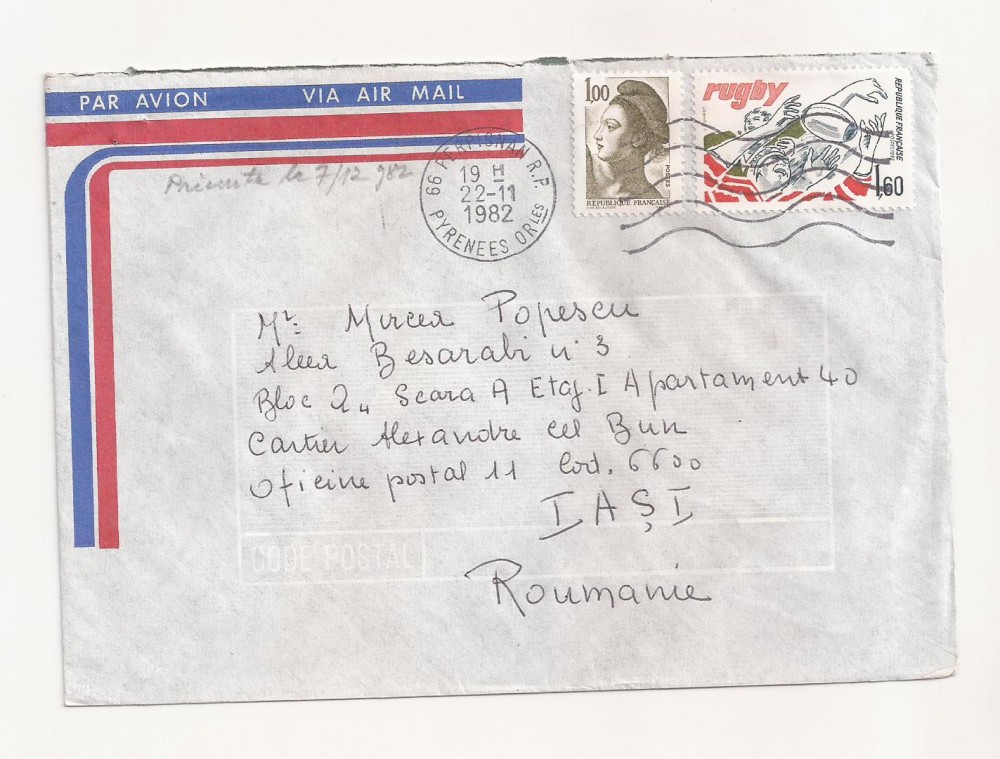 PAR AVION VIA AIR MAIL
1,00
POSTES
REPUBLIQUE FRANÇAISE
rugby
REPUBLIQUE FRANÇAISE
1,60
66 PERPIGNAN R.P.
19 H
22-11
1982
PYRENEES ORLES
le 7/12 982
Mr: Mircea Popescu
Aleea Besarabi n° 3
Bloc 2, Scara A Etaj. I Apartament 40
Cartier Alexandre cel Bun
Oficine postal 11 Cod. 6600
IAŞI
CODE POSTAL
Roumanie